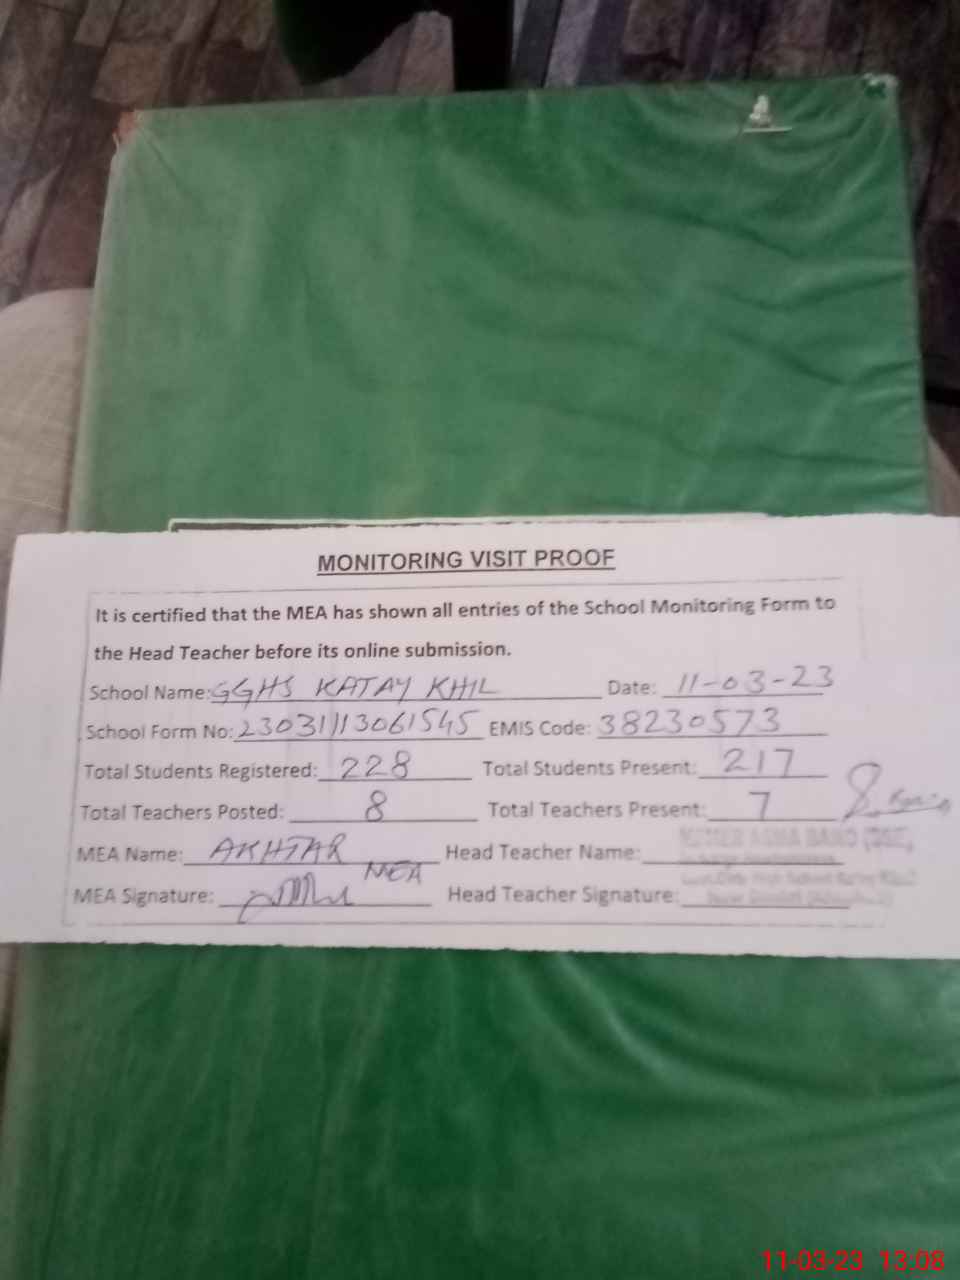 MONITORING VISIT PROOF
It is certified that the MEA has shown all entries of the School Monitoring Form to
the Head Teacher before its online submission.
School Name: GGHS KATAY KHIL Date: 11-03-23
School Form No: 23031113061545 EMIS Code: 38230573
Total Students Registered: 228 Total Students Present: 217
Total Teachers Posted: 8 Total Teachers Present: 7
MEA Name: AKHTAR Head Teacher Name:
MEA
MEA Signature: Head Teacher Signature:
11-03-23 13:08